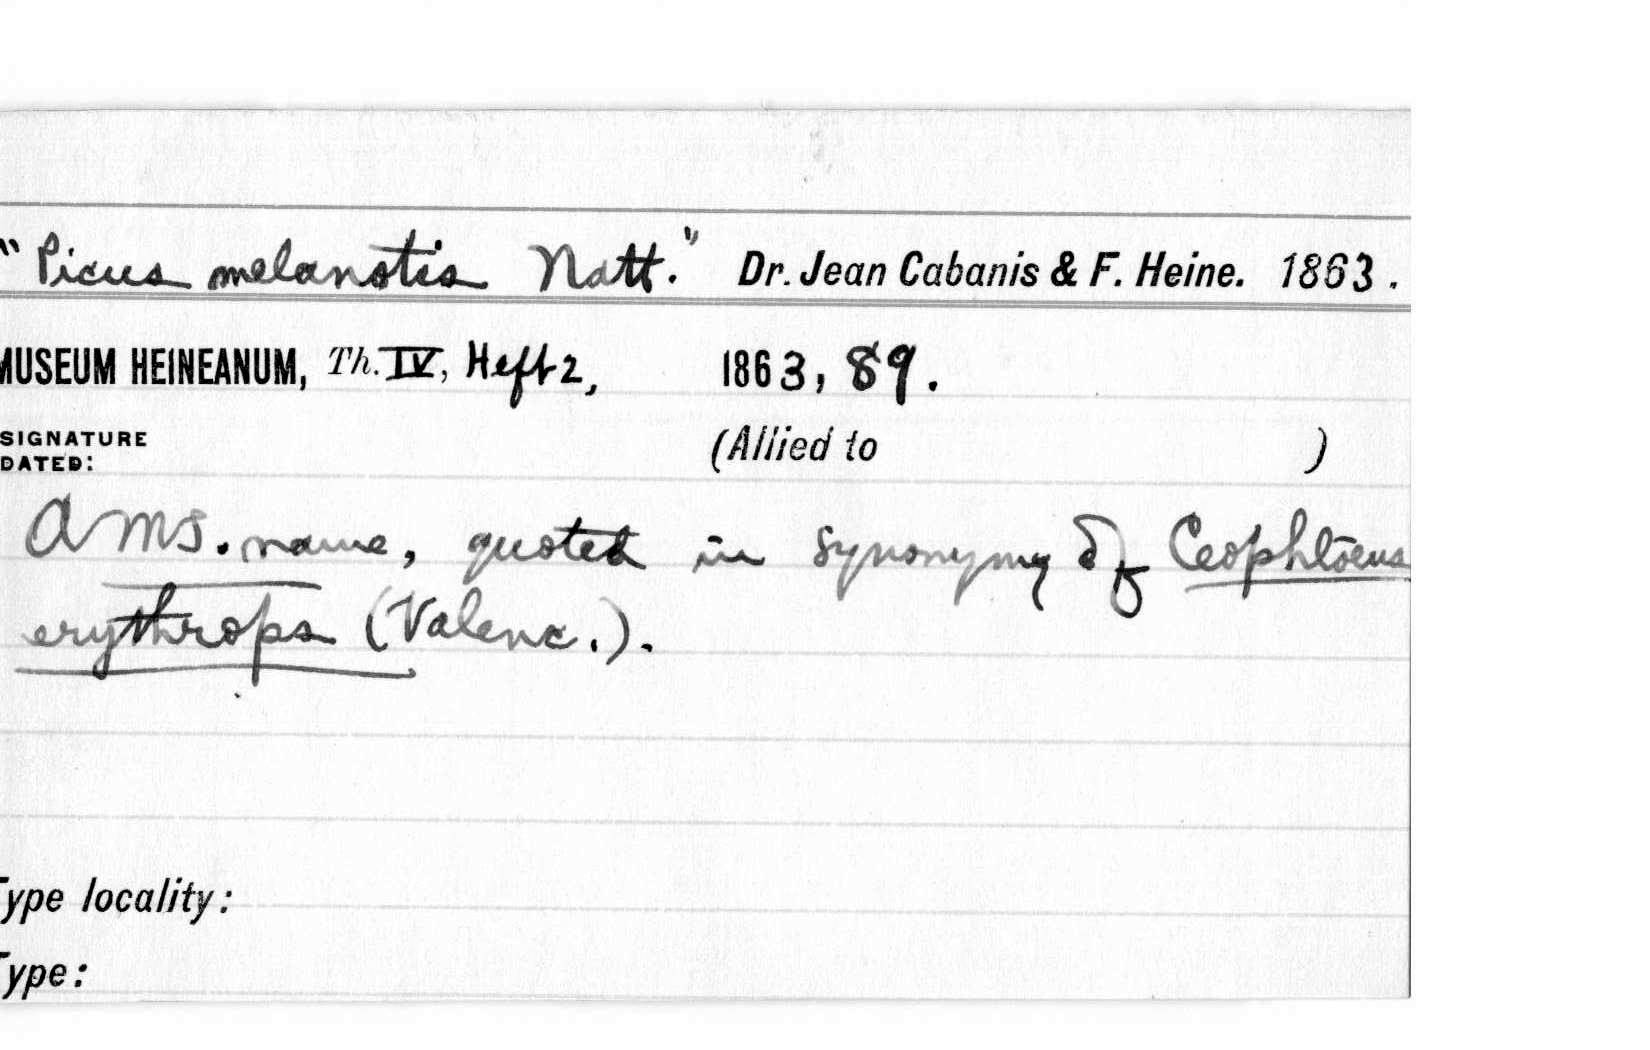 "Picus melanotis Natt." Dr. Jean Cabanis & F. Heine. 1863.
MUSEUM HEINEANUM, Th. IV, Heft 2, 1863, 89.
SIGNATURE (Allied to )
DATED:
A MS. name, quoted in synonymy of Ceophloeus
erythrops (Valenc.).
Type locality:
Type: